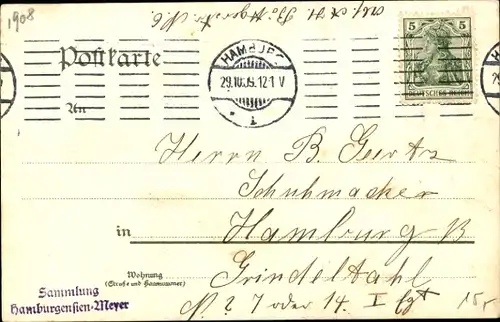 1908
Postkarte
HAMBURG
29.10.09.12-1 V
1
5 5
DEUTSCHES REICH
An
Herrn B. Geertz
Schuhmacker
in Hamburg
Wohnung
(Straße und Hausnummer)
Grindeltahl
7 oder 14. I
15,-
Sammlung
Hamburgensien-Meyer